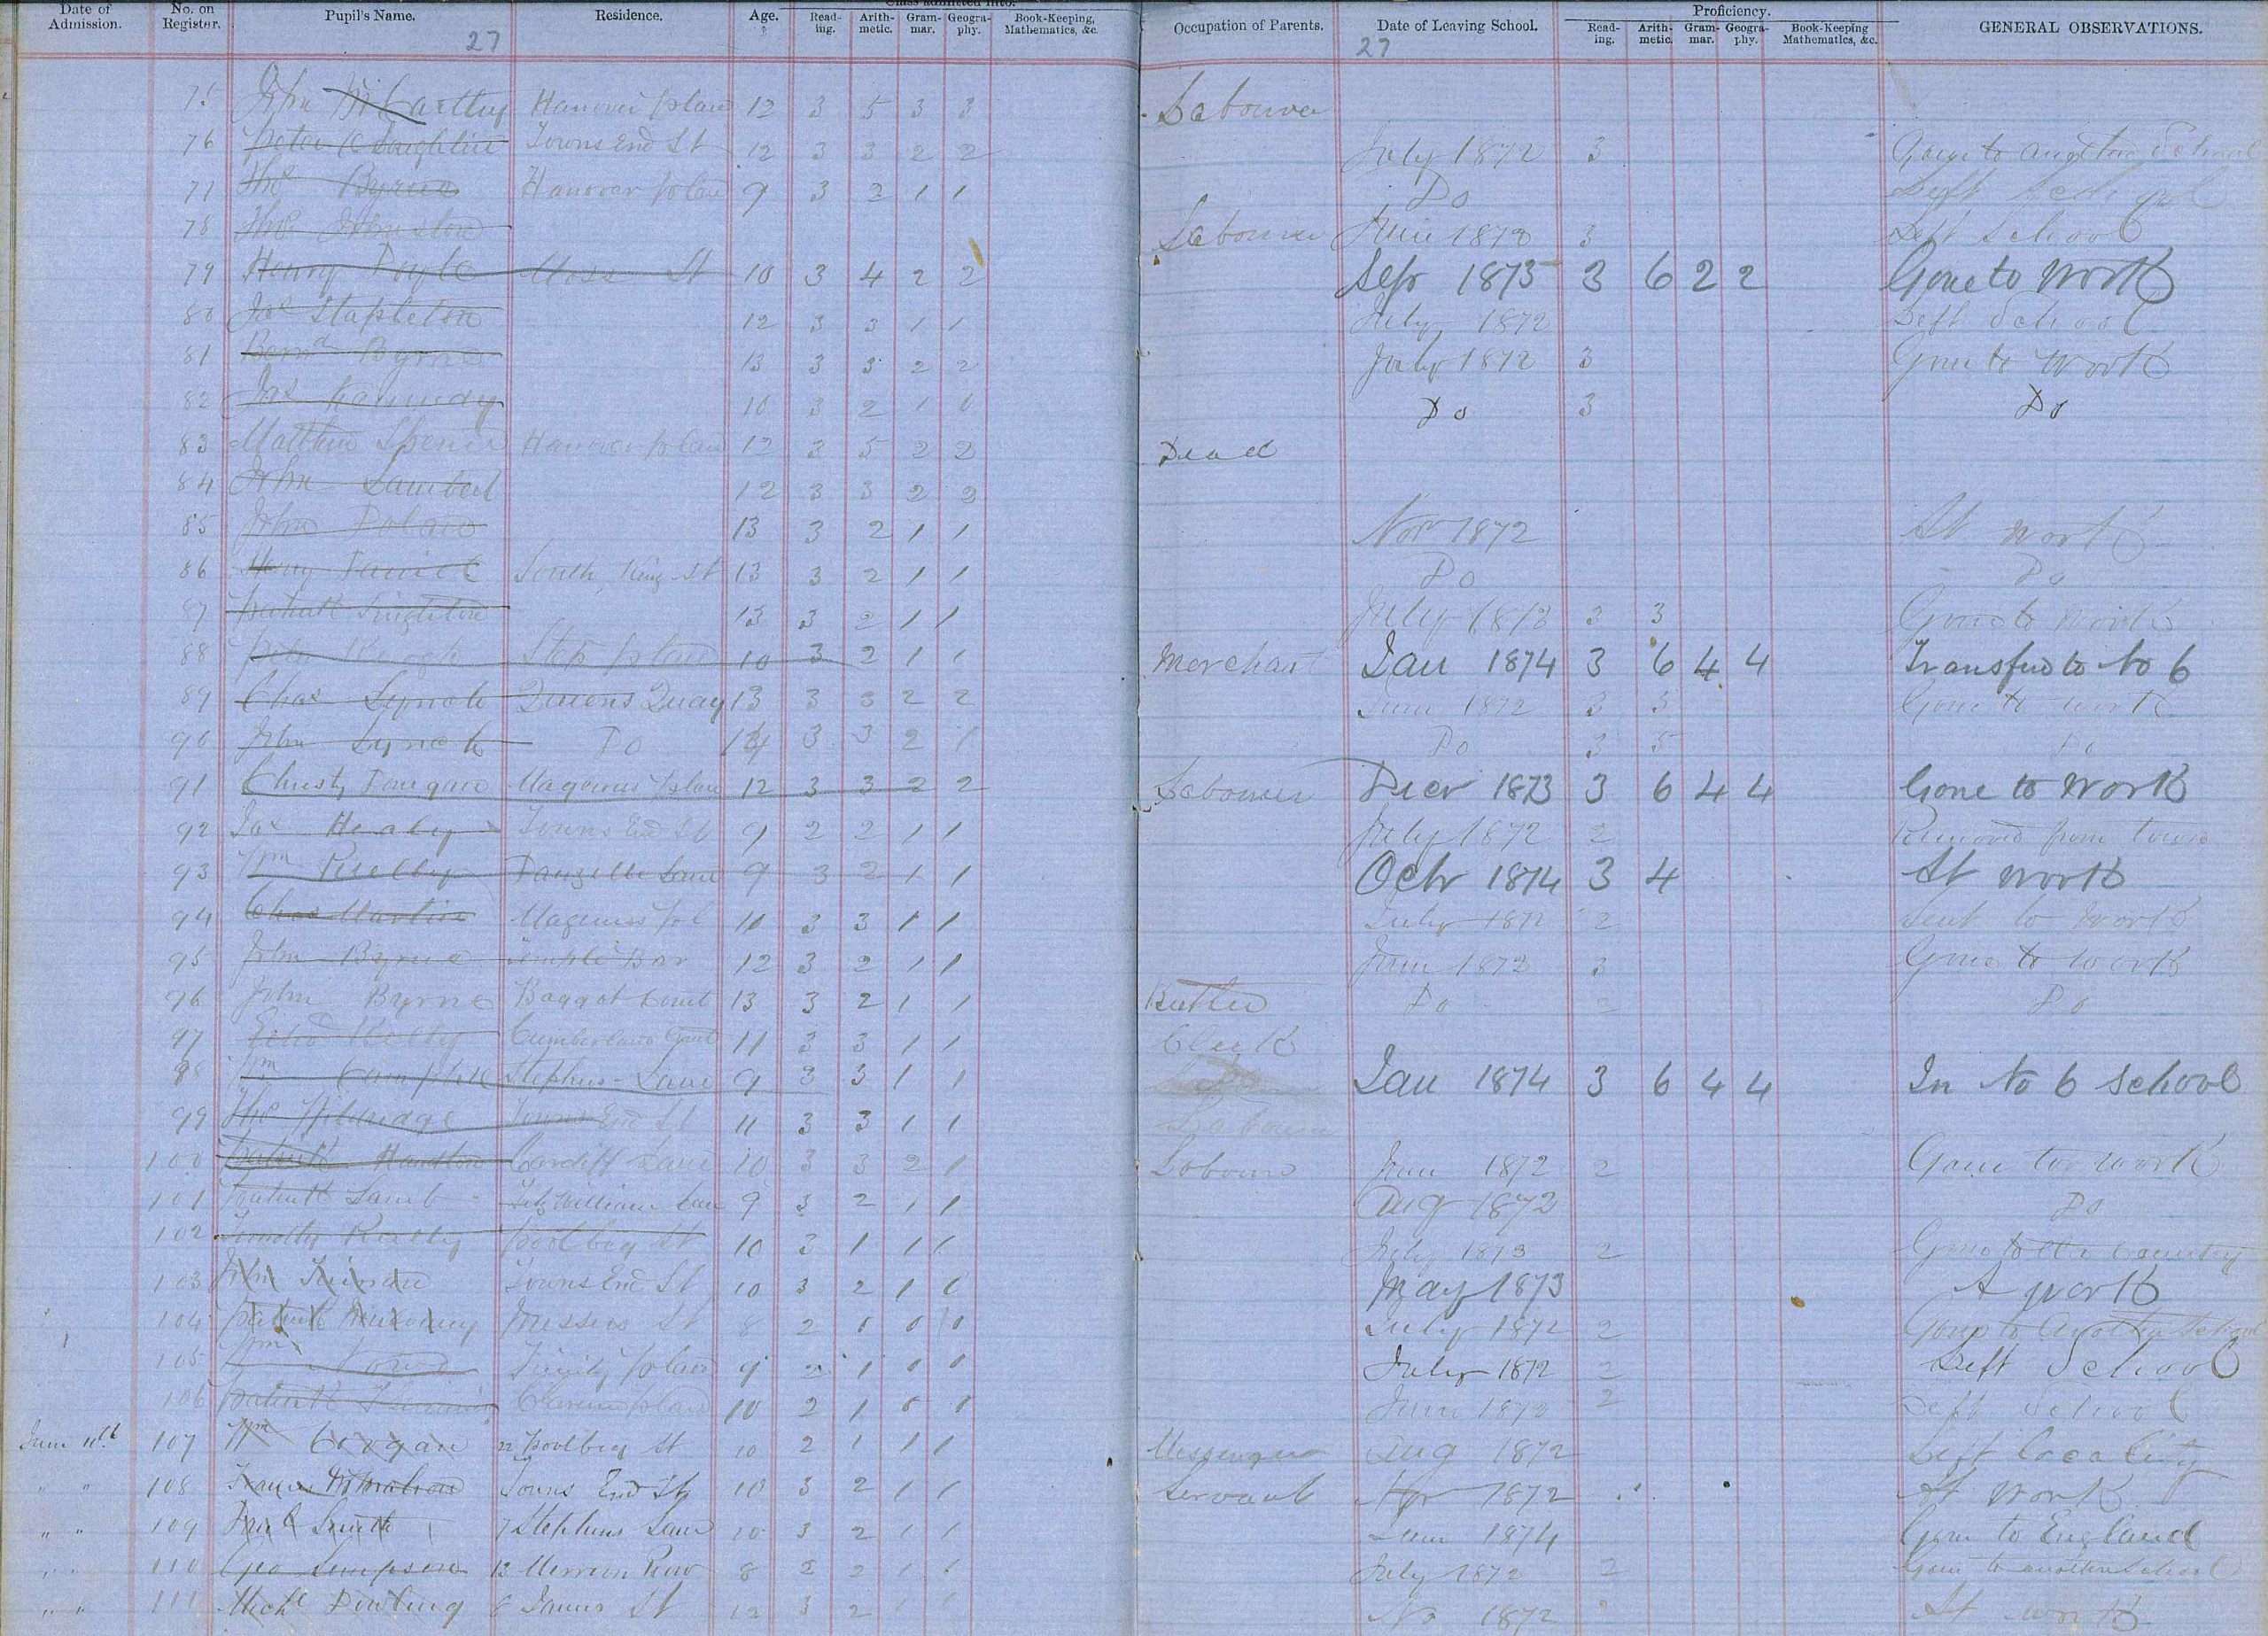 Date of Admission. No. on Register. Pupil's Name. Residence. Age. Class admitted into: Read-ing. Arith-metic. Gram-mar. Geogra-phy. Book-Keeping, Mathematics, &c. Occupation of Parents. Date of Leaving School. Proficiency. Read-ing. Arith-metic. Gram-mar. Geogra-phy. Book-Keeping Mathematics, &c. GENERAL OBSERVATIONS.
27 27
75 John McCarthy Hanover place 12 3 5 3 3 Labourer
76 Peter Towns End St 12 3 3 2 2 July 1872 3 Gone to another School
77 Thos Byrne Hanover place 9 3 2 1 1 Do Left School
78 Thos Johnston Labourer June 1873 3 Left School
79 Henry Doyle Moss St 10 3 4 2 2 Sepr 1873 3 6 2 2 Gone to work
80 Jas Stapleton 12 3 3 1 1 July 1872 Left School
81 Bernd Byrne 13 3 3 2 2 July 1872 3 Gone to work
82 Jas 10 3 2 1 0 Do 3 Do
83 Matthew Spencer Hanover place 12 3 5 2 2 Dead
84 John Lambert 12 3 3 2 2
85 John Dolan 13 3 2 1 1 Novr 1872 At work
86 Daniel South King St 13 3 2 1 1 Do Do
87 Patrick Singleton 13 3 2 1 1 July 1873 3 3 Gone to work
88 Peter Keogh place 10 3 2 1 1 Merchant Jan 1874 3 6 4 4 Transferd to No 6
89 Chas Lynch Queens Quay 13 3 3 2 2 June 1872 3 3 Gone to work
90 John Lynch Do 14 3 3 2 1 Do 3 5 Do
91 Christy Dungan Magennis place 12 3 3 2 2 Labourer Decr 1873 3 6 4 4 Gone to work
92 Jas Healy Towns End St 9 2 2 1 1 July 1872 2 Removed from town
93 Wm Reilly Denzille Lane 9 3 2 1 1 Octr 1874 3 4 At work
94 Chas Martin Magennis pl 10 3 3 1 1 July 1872 2 Sent to work
95 John Byrne Temple Bar 12 3 2 1 1 June 1872 3 Gone to work
96 John Byrne Baggot Court 13 3 2 1 1 Butler Do 2 Do
97 Edwd Cumberland 11 3 3 1 1 Clerk
98 Wm Campbell Stephens Lane 9 3 3 1 1 Jan 1874 3 6 4 4 In No 6 School
99 Thos Towns End St 11 3 3 1 1 Labourer
100 Patrick Cardiff Lane 10 3 3 2 1 Labourer June 1872 2 Gone to work
101 Patrick Lamb Fitzwilliam Lane 9 3 2 1 1 Aug 1872 Do
102 Timothy Reilly Poolbeg St 10 3 1 1 1 July 1873 2 Gone to the Country
103 John Towns End St 10 3 2 1 0 May 1873 A work
104 Patrick Messers St 8 2 0 0 0 July 1872 2 Gone to another School
105 Wm Trinity place 9 2 1 0 1 July 1872 2 Left School
106 Patrick Clarence place 10 2 1 0 0 June 1872 2 Left School
June 10th 107 Wm Coogan 22 Poolbeg St 10 2 1 1 1 Messenger Aug 1872 Left locality
" " 108 Francis McMahon Towns End St 10 3 2 1 1 Servant Nov 1872 At work
" " 109 Smith 7 Stephens Lane 10 3 2 1 1 1874 Gone to England
" " 110 Geo Simpson 13 Merrion Row 8 2 2 1 1 July 1872 2 Gone to another School
" " 111 Michl Dowling 8 James St 12 3 2 1 1 No 1872 At work